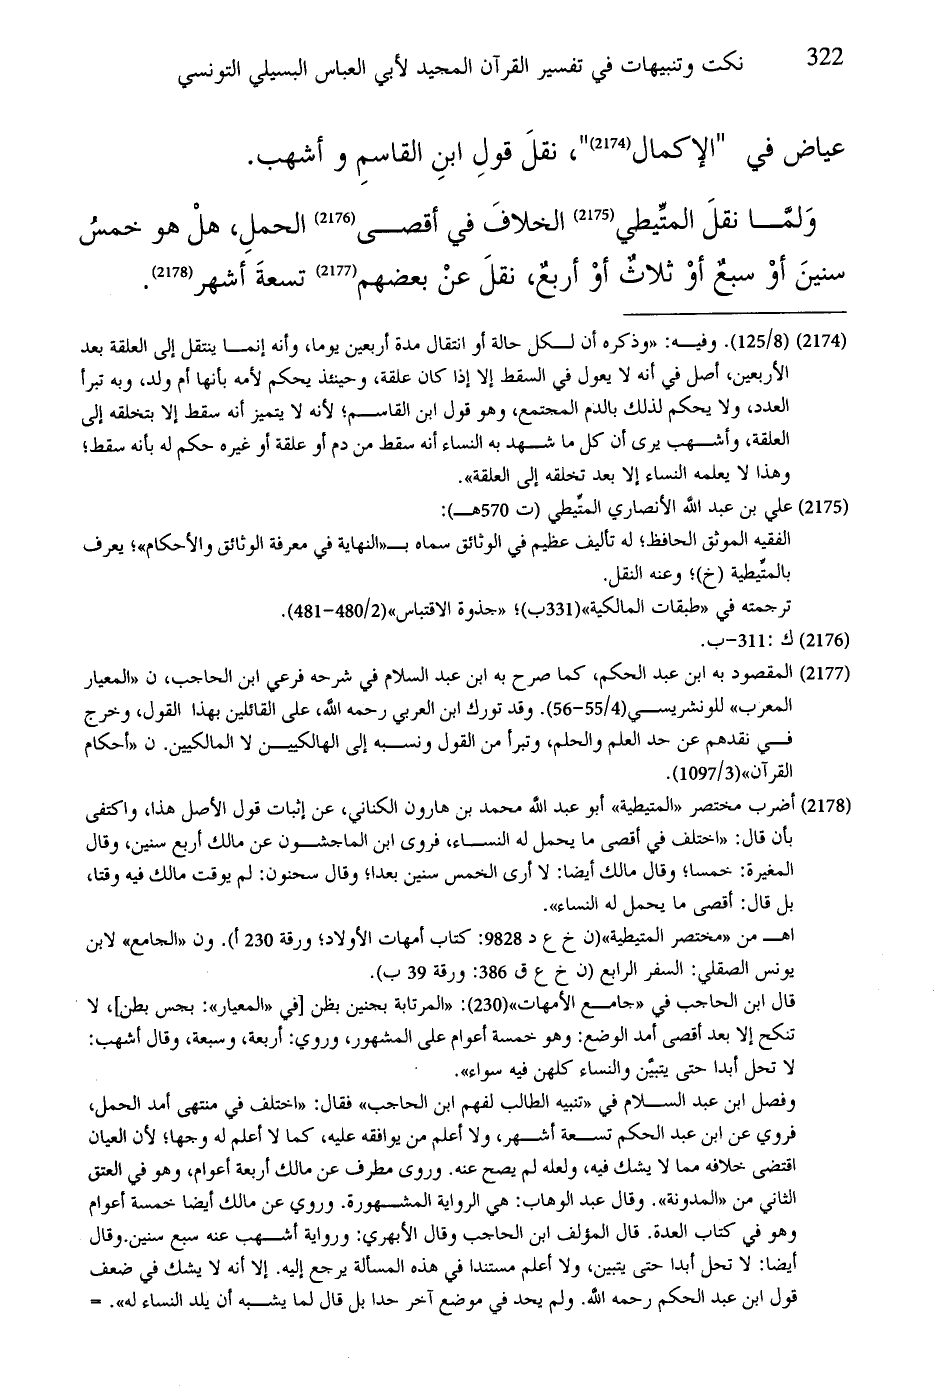 322
نكت وتنبيهات في تفسير القرآن المجيد لأبي العباس البسيلي التونسي
عياض في "الإكمال(2174)"، نقلَ قولِ ابنِ القاسمِ و أشهب.
وَلمَّا نقلَ المتِّيطي(2175) الخلافَ في أقصى(2176) الحملِ، هلْ هو خمسُ
سنينَ أوْ سبعٌ أوْ ثلاثٌ أوْ أربعٌ، نقلَ عنْ بعضهم(2177) تسعةَ أشهر(2178).
(2174) (125/8). وفيه: «وذكره أن لكل حالة أو انتقال مدة أربعين يوما، وأنه إنما ينتقل إلى العلقة بعد
الأربعين، أصل في أنه لا يعول في السقط إلا إذا كان علقة، وحينئذ يحكم لأمه بأنها أم ولد، وبه تبرأ
العدد، ولا يحكم لذلك بالدم المجتمع، وهو قول ابن القاسم؛ لأنه لا يتميز أنه سقط إلا بتخلقه إلى
العلقة، وأشهب يرى أن كل ما شهد به النساء أنه سقط من دم أو علقة أو غيره حكم له بأنه سقط؛
وهذا لا يعلمه النساء إلا بعد تخلقه إلى العلقة».
(2175) علي بن عبد الله الأنصاري المتِّيطي (ت 570هـ):
الفقيه الموثق الحافظ؛ له تأليف عظيم في الوثائق سماه بـ«النهاية في معرفة الوثائق والأحكام»؛ يعرف
بالمتِّيطية (خ)؛ وعنه النقل.
ترجمته في «طبقات المالكية»(331ب)؛ «جذوة الاقتباس»(480/2-481).
(2176) ك :311-ب.
(2177) المقصود به ابن عبد الحكم، كما صرح به ابن عبد السلام في شرحه فرعي ابن الحاجب، ن «المعيار
المعرب» للونشريسي(55/4-56). وقد تورك ابن العربي رحمه الله، على القائلين بهذا القول، وخرج
في نقدهم عن حد العلم والحلم، وتبرأ من القول ونسبه إلى الهالكيين لا المالكيين. ن «أحكام
القرآن»(1097/3).
(2178) أضرب مختصر «المتيطية» أبو عبد الله محمد بن هارون الكناني، عن إثبات قول الأصل هذا، واكتفى
بأن قال: «اختلف في أقصى ما يحمل له النساء، فروى ابن الماجشون عن مالك أربع سنين، وقال
المغيرة: خمسا؛ وقال مالك أيضا: لا أرى الخمس سنين بعدا؛ وقال سحنون: لم يوقت مالك فيه وقتا،
بل قال: أقصى ما يحمل له النساء».
اهـ من «مختصر المتيطية»(ن خ ع د 9828: كتاب أمهات الأولاد؛ ورقة 230 أ). ون «الجامع» لابن
يونس الصقلي: السفر الرابع (ن خ ع ق 386: ورقة 39 ب).
قال ابن الحاجب في «جامع الأمهات»(230): «المرتابة بجنين بظن [في «المعيار»: بحس بطن]، لا
تنكح إلا بعد أقصى أمد الوضع: وهو خمسة أعوام على المشهور، وروي: أربعة، وسبعة، وقال أشهب:
لا تحل أبدا حتى يتبيَّن والنساء كلهن فيه سواء».
وفصل ابن عبد السلام في «تنبيه الطالب لفهم ابن الحاجب» فقال: «اختلف في منتهى أمد الحمل،
فروي عن ابن عبد الحكم تسعة أشهر، ولا أعلم من يوافقه عليه، كما لا أعلم له وجها؛ لأن العيان
اقتضى خلافه مما لا يشك فيه، ولعله لم يصح عنه. وروى مطرف عن مالك أربعة أعوام، وهو في العتق
الثاني من «المدونة». وقال عبد الوهاب: هي الرواية المشهورة. وروي عن مالك أيضا خمسة أعوام
وهو في كتاب العدة. قال المؤلف ابن الحاجب وقال الأبهري: ورواية أشهب عنه سبع سنين.وقال
أيضا: لا تحل أبدا حتى يتبين، ولا أعلم مستندا في هذه المسألة يرجع إليه. إلا أنه لا يشك في ضعف
قول ابن عبد الحكم رحمه الله. ولم يحد في موضع آخر حدا بل قال لما يشبه أن يلد النساء له». =